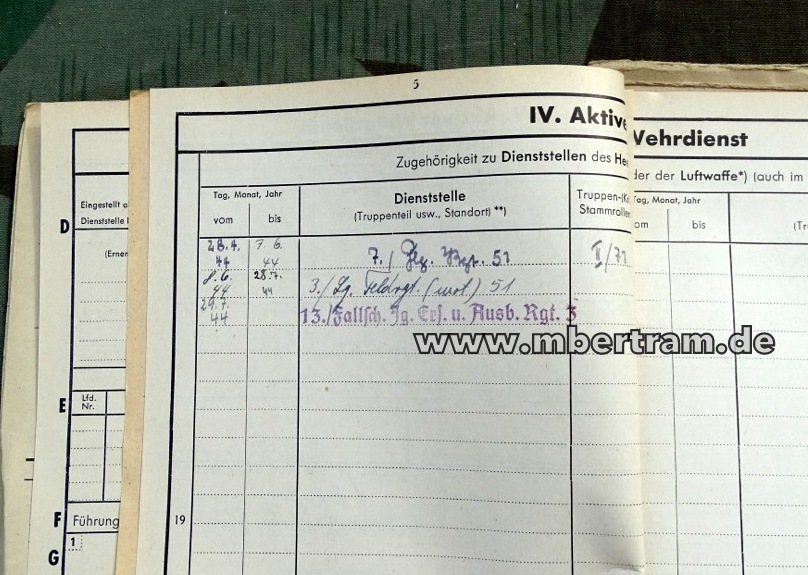 5
IV. Aktive
Wehrdienst
Zugehörigkeit zu Dienststellen des He
der der Luftwaffe*) (auch im
Tag, Monat, Jahr
vom
bis
Dienststelle
(Truppenteil usw., Standort) **)
Truppen-(K
Stammrollen
Tag, Monat, Jahr
om
bis
(Tr
28.4. 44
7. 6. 44
7./ Flg. Rgt. 51
II/71
8.6. 44
28.7. 44
3./ Lg. Feldrgt. (mot) 51
29.7. 44
13./Fallsch. Jg. Ers. u. Ausb. Rgt. 3
www.mbertram.de
19
D
Eingestellt
Dienststelle
(Erner
E
Lfd. Nr.
F
Führung
1
G